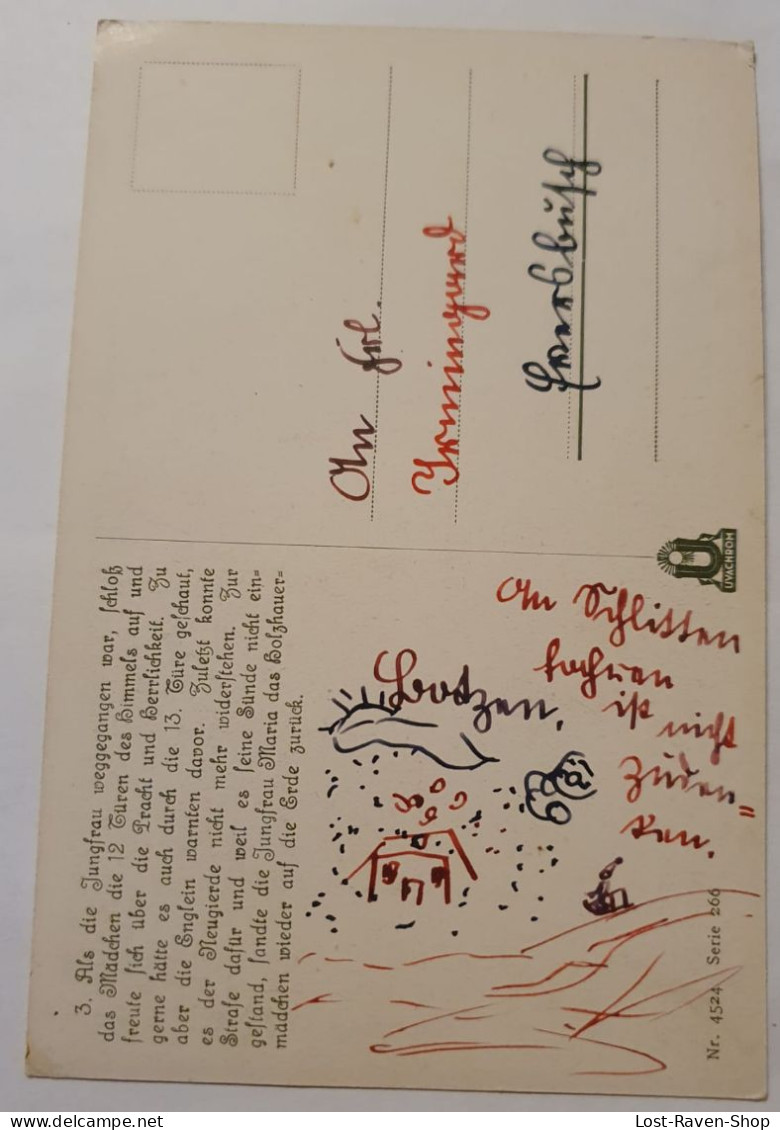 3. Als die Jungfrau weggegangen war, schloß
das Mädchen die 12 Türen des Himmels auf und
freute sich über die Pracht und Herrlichkeit. Zu
gerne hätte es auch durch die 13. Türe geschaut,
aber die Englein warnten davor. Zuletzt konnte
es der Neugierde nicht mehr widerstehen. Zur
Strafe dafür und weil es seine Sünde nicht ein=
gestand, sandte die Jungfrau Maria das Holzhauer=
mädchen wieder auf die Erde zurück.
An Schlitten
fahren
ist nicht
zuden=
ken.
An Frl.
Irmingard
UVACHROM
Nr. 4524 Serie 266
Lost-Raven-Shop